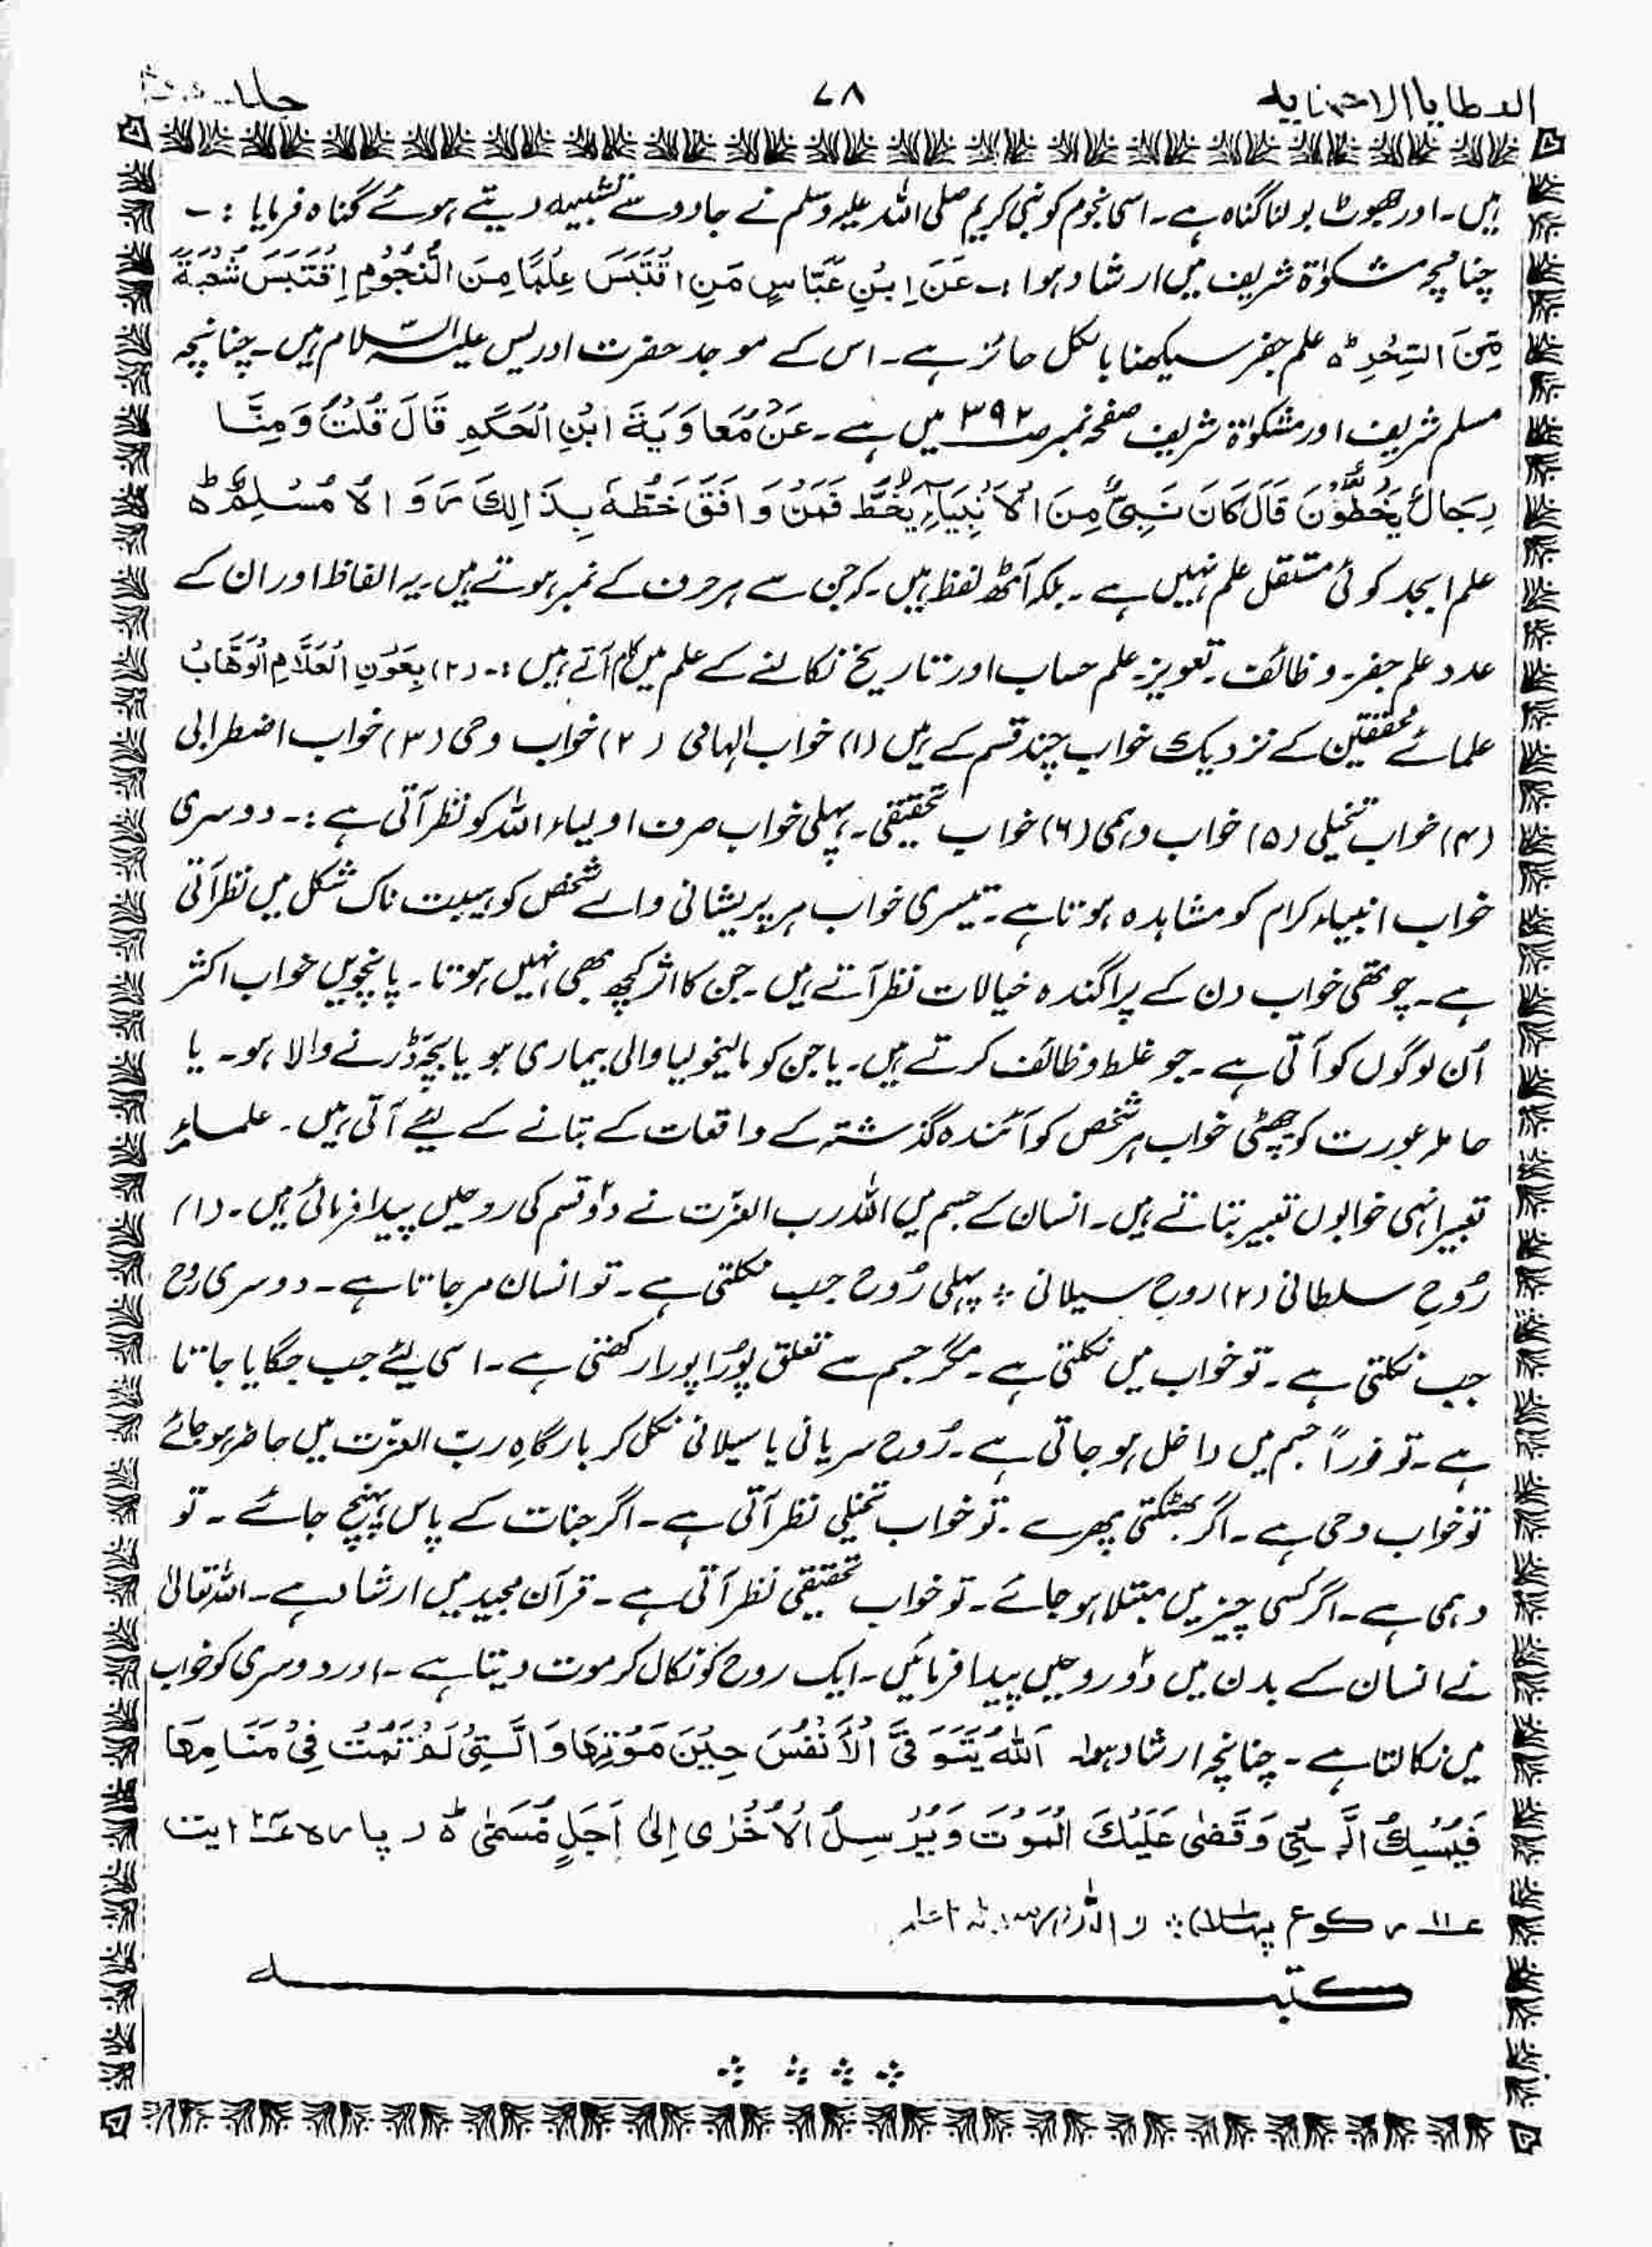 العطایا الاحمدیہ ۷۸ جلد
ہیں۔ اور جھوٹ بولنا گناہ ہے۔ اسی نجوم کو نبی کریم صلی اللہ علیہ وسلم نے جادو سے تشبیہہ دیتے ہوئے گناہ فرمایا :۔
چنانچہ مشکوٰۃ شریف میں ارشاد ہوا :۔ عَنَ اِبْنِ عَبَّاسٍ مَنِ اقْتَبَسَ عِلْمًا مِنَ النُّجُوْمِ اِقْتَبَسَ شُعْبَةً
مِّنَ السِّحْرِ ط ہ علم جفر سیکھنا بالکل جائز ہے۔ اس کے موجد حضرت ادریس علیہ السّلام ہیں۔ چنانچہ
مسلم شریف اور مشکوٰۃ شریف صفحہ نمبر ص۳۹۲ میں ہے۔ عَنْ مُعَاوَيَةَ ابْنِ الْحَكَمِ قَالَ قُلْتُ وَمِنَّا
رِجَالٌ يَخُطُّوْنَ قَالَ كَانَ نَبِيٌّ مِنَ الْاَنْبِيَاءِ يَخُطُّ فَمَنْ وَافَقَ خَطَّهٗ بِذَالِكَ رَوَاهُ مُسْلِمٌ ط ہ
علم ابجد کوئی مستقل علم نہیں ہے۔ بلکہ آٹھ لفظ ہیں۔ کہ جن سے ہر حرف کے نمبر ہوتے ہیں۔ یہ الفاظ اور ان کے
عدد علم جفر۔ وظائف۔ تعویز۔ علم حساب اور تاریخ نکالنے کے علم میں کام آتے ہیں :۔ (۲) بِعَوْنِ الْعَلَّامِ الْوَهَّابُ
علمائے محققین کے نزدیک خواب چند قسم کے ہیں (۱) خواب الہامی (۲) خواب وحی (۳) خواب اضطرابی
(۴) خواب تخیلی (۵) خواب وہمی (۶) خواب تحقیقی۔ پہلی خواب صرف اولیاء اللہ کو نظر آتی ہے :۔ دوسری
خواب انبیاء کرام کو مشاہدہ ہوتا ہے۔ تیسری خواب ہر پریشانی والے شخص کو ہیبت ناک شکل میں نظر آتی
ہے۔ چوتھی خواب دن کے پراگندہ خیالات نظر آتے ہیں۔ جن کا اثر کچھ بھی نہیں ہوتا۔ پانچویں خواب اکثر
اُن لوگوں کو آتی ہے۔ جو غلط وظائف کرتے ہیں۔ یا جن کو مالیخولیا والی بیماری ہو یا بچّہ ڈرنے والا ہو۔ یا
حاملہ عورت کو چھٹی خواب ہر شخص کو آئندہ گذشتہ کے واقعات کے بتانے کے لیئے آتی ہیں۔ علماءِ
تعبیر انہی خوابوں تعبیر بتاتے ہیں۔ انسان کے جسم میں اللہ رب العزّت نے دوٗ قسم کی روحیں پیدا فرمائی ہیں۔ (۱)
رُوحِ سلطانی (۲) روحِ سیلانی ؞ پہلی رُوح جب نکلتی ہے۔ تو انسان مر جاتا ہے۔ دوسری روح
جب نکلتی ہے۔ تو خواب میں نکلتی ہے۔ مگر جسم سے تعلق پُورا پورا رکھتی ہے۔ اسی لیئے جب جگایا جاتا
ہے۔ تو فوراً جسم میں داخل ہو جاتی ہے۔ رُوح سریانی یا سیلانی نکل کر بارگاہِ ربّ العزّت میں حاضر ہو جائے
تو خواب وحی ہے۔ اگر بھٹکتی پھرے۔ تو خواب تخیلی نظر آتی ہے۔ اگر جنات کے پاس پہنچ جائے۔ تو
وہمی ہے۔ اگر کسی چیز میں مبتلا ہو جائے۔ تو خواب تحقیقی نظر آتی ہے۔ قرآن مجید میں ارشاد ہے۔ اللہ تعالیٰ
نے انسان کے بدن میں دوٗ روحیں پیدا فرمائیں۔ ایک روح کو نکال کر موت دیتا ہے۔ اور دوسری کو خواب
میں نکالتا ہے۔ چنانچہ ارشاد ہوا۔ اَللّٰهُ يَتَوَفَّى الْاَنْفُسَ حِيْنَ مَوْتِهَا وَالَّتِيْ لَمْ تَمُتْ فِيْ مَنَامِهَا
فَيُمْسِكُ الَّتِيْ وَقَضٰى عَلَيْكَ الْمَوْتَ وَيُرْسِلُ الْاُخْرٰى اِلٰى اَجَلٍ مُّسَمّٰى ط ہ (پارہ ایت
رکوع پہلا) ؞ و اللہ
کتبہ